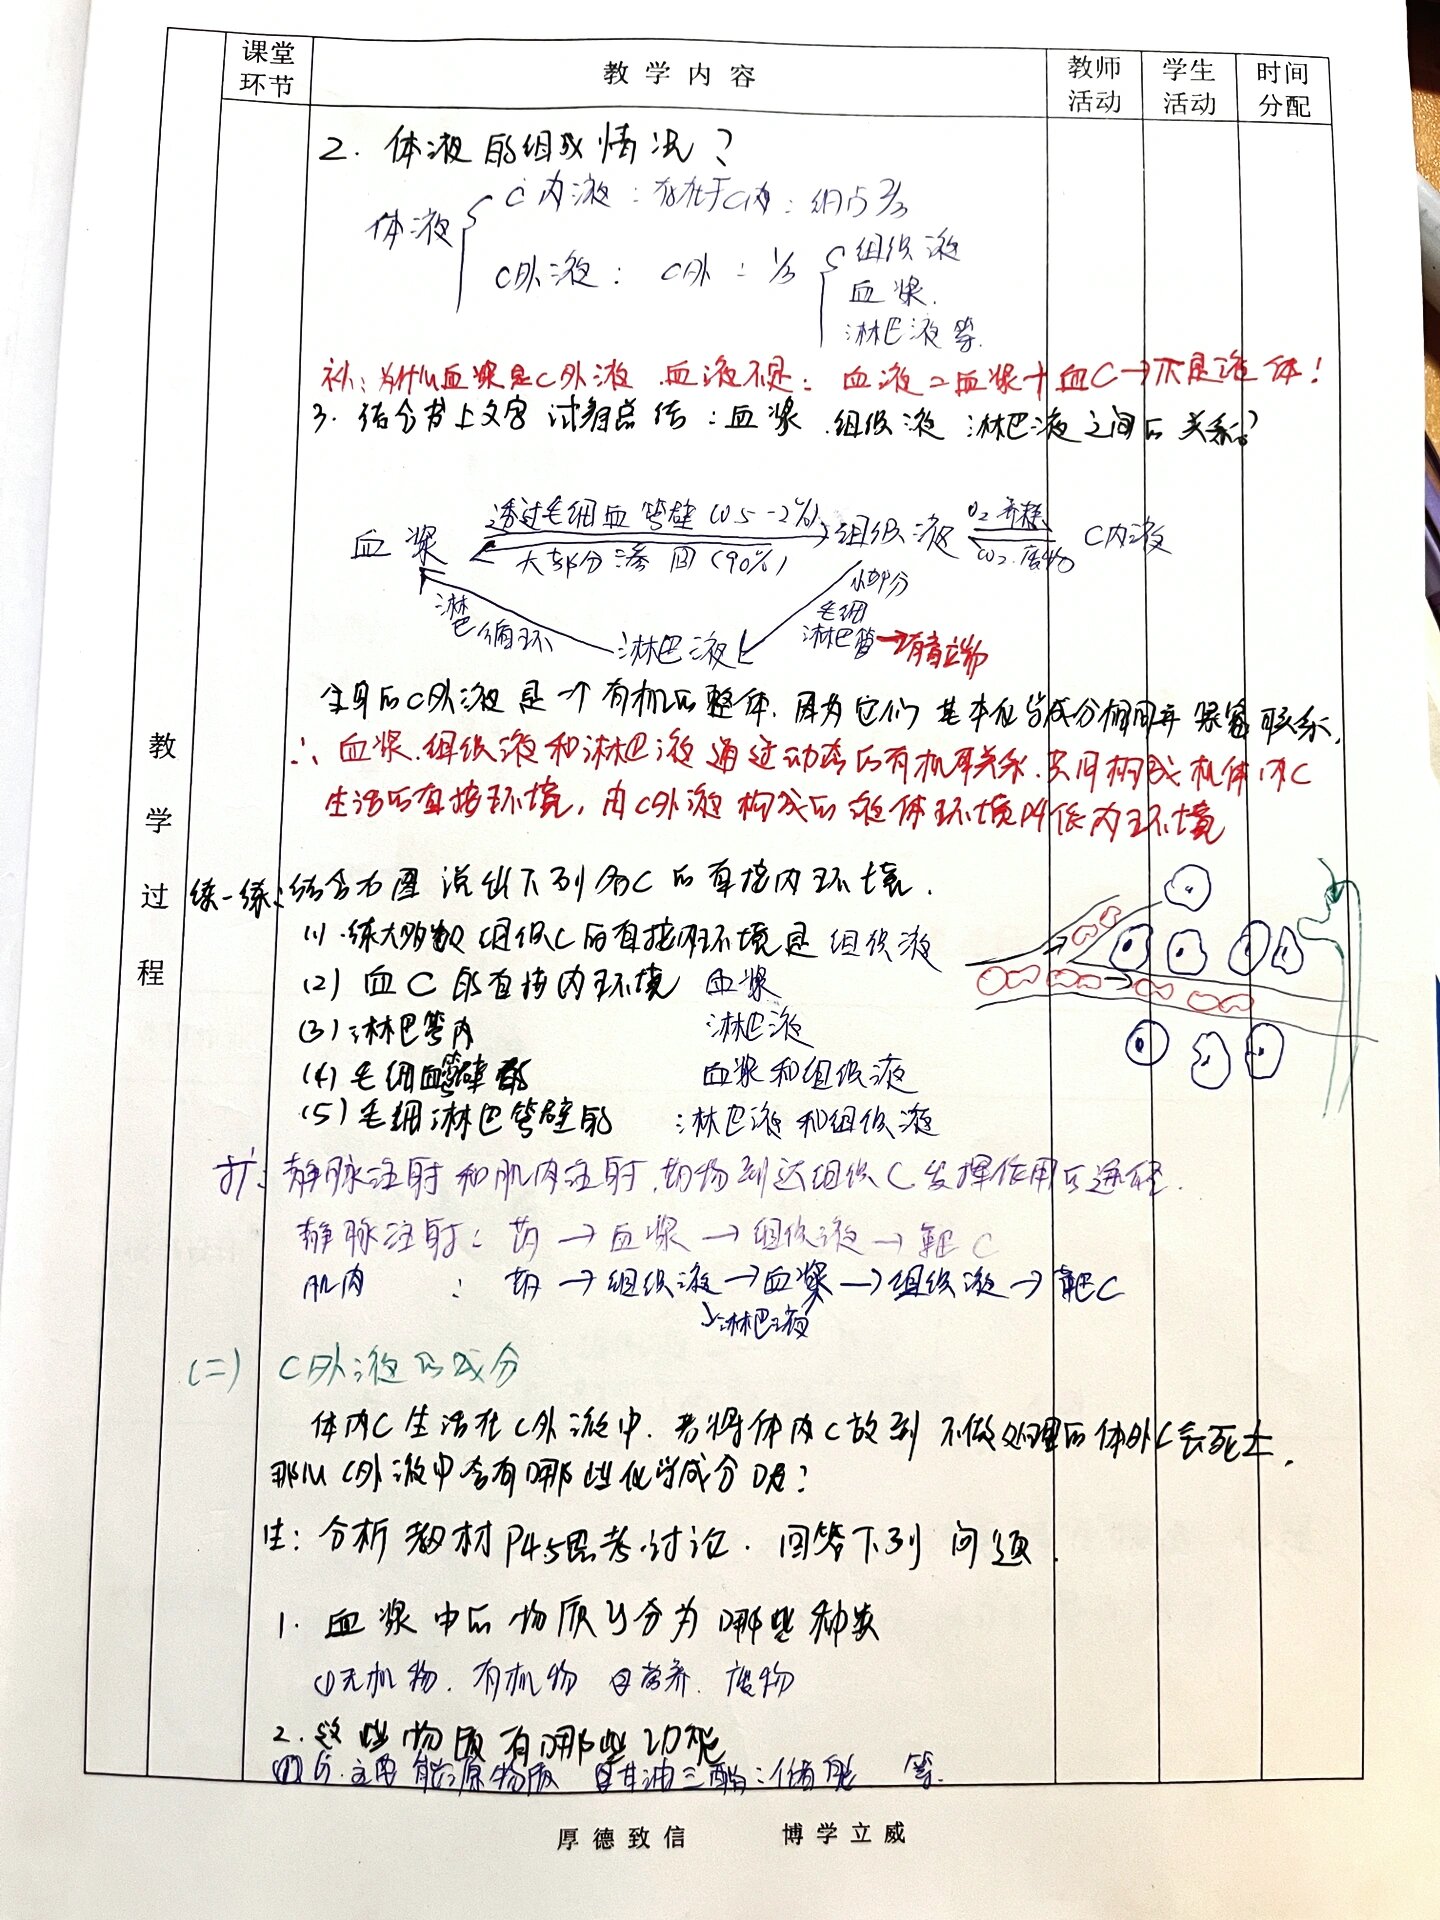 课堂环节 教学内容 教师活动 学生活动 时间分配
教学过程
2. 体液的组成情况?
体液
C内液：存在于C内：约占2/3
C外液： C外：1/3
组织液
血浆.
淋巴液等.
补：为什么血浆是C外液.血液不是：血液=血浆+血C→不是液体!
3. 结合书上文字讨论总结：血浆.组织液 淋巴液之间的关系?
血浆 透过毛细血管壁(0.5-2%) 组织液 O2 养料 C内液
大部分渗回(90%) CO2.废物
淋巴循环 淋巴液 小部分
毛细
淋巴管→有盲端
全身的C外液是一个有机的整体.因为它们基本化学成分相同并紧密联系.
∴血浆.组织液和淋巴液通过动态的有机联关系.共同构成机体内C
生活的直接环境,由C外液构成的液体环境叫作内环境
练一练：结合右图说出下列各C的直接内环境.
(1) 绝大多数组织C的直接内环境是 组织液
(2) 血C的直接内环境 血浆
(3) 淋巴管内 淋巴液
(4) 毛细血管壁 血浆和组织液
(5) 毛细淋巴管壁的 淋巴液和组织液
扩：静脉注射和肌肉注射.药物到达组织C发挥作用的途径.
静脉注射：药→血浆→组织液→靶C
肌肉 ：药→组织液→血浆→组织液→靶C
淋巴液
(二) C外液的成分
体内C生活在C外液中.若将体内C放到不做处理的体外C会死亡.
那么C外液中含有哪些化学成分呢?
生：分析教材P45思考讨论.回答下列问题.
1. 血浆中的物质可分为哪些种类
①无机物.有机物 ②营养.废物
2. 这些物质有哪些功能
主要能源物质 甘油三酯：储能 等.
厚德致信 博学立威